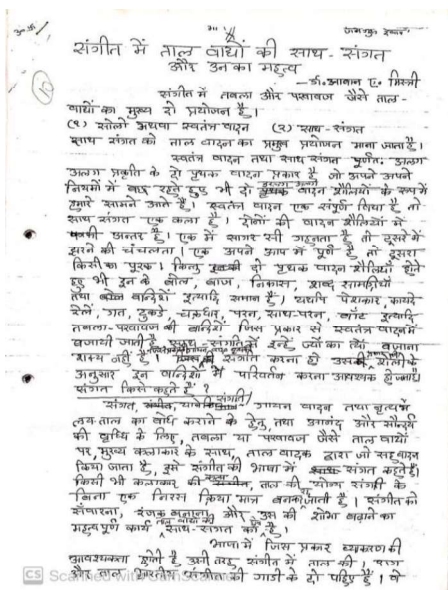 संगीत में ताल वाद्यों की साथ-संगत
और उनका महत्व
-डॉ. आबान ए. मिस्त्री
संगीत में तबला और पखावज जैसे ताल-
वाद्यों का मुख्य दो प्रयोजन है।
(१) सोलो अथवा स्वतंत्र वादन (२) साथ-संगत
साथ संगत को ताल वादन का प्रमुख प्रयोजन माना जाता है।
स्वतंत्र वादन तथा साथ संगत पूर्णतः अलग
अलग प्रकृति के दो पृथक वादन प्रकार है जो अपने अपने
नियमों में बद्ध रहते हुए भी दो वादन शैलियों के रूप में
हमारे सामने आते हैं। स्वतंत्र वादन एक संपूर्ण विद्या है तो
साथ संगत एक कला है। दोनों की वादन शैलियों में
अन्तर है। एक में सागर सी गहनता है तो दूसरे में
झरने की चंचलता। एक अपने आप में पूर्ण है तो दूसरा
किसी का पूरक। किन्तु दो पृथक वादन शैलियां होते
हुए भी इन के बोल, बाज, निकास, शब्द सामग्रियाँ
तथा बन्दिशें इत्यादि समान हैं। यद्यपि पेशकार, कायदे
रेले, गत, टुकडे, चक्रधार, परन, साथ-परन, बाँट इत्यादि
तबला-पखावज की बन्दिशें जिस प्रकार से स्वतंत्र वादन में
बजायी जाती हैं साथ-संगत में इन्हें ज्यों का त्यों बजाना
शक्य नहीं है। संगति करना हो उसकी शैली के
अनुसार इन बन्दिशों में परिवर्तन करना आवश्यक हो जाता है।
संगत किसे कहते हैं?
संगत, याने संगती। गायन वादन तथा नृत्य में
लय-ताल का बोध कराने के हेतु, तथा आनंद और सौन्दर्य
की वृध्धि के लिए, तबला या पखावज जैसे ताल वाद्यों
पर, मुख्य कलाकार के साथ, ताल वादक द्वारा जो सह वादन
किया जाता है, इसे संगीत की भाषा में संगत कहते हैं।
किसी भी कलाकार की कला, ताल की योग्य संगति के
बिना एक निरस क्रिया मात्र बनकर रह जाती है। संगीत को
संवारना, रंजक बनाना और उस की शोभा बढ़ाने का
महत्वपूर्ण कार्य साथ-संगत का है।
भाषा में जिस प्रकार व्याकरण की
आवश्यकता होती है उसी तरह संगीत में ताल की। राग
और ताल भारतीय संगीत की गाडी के दो पहिए हैं। ये
CS Scanned with CamScanner